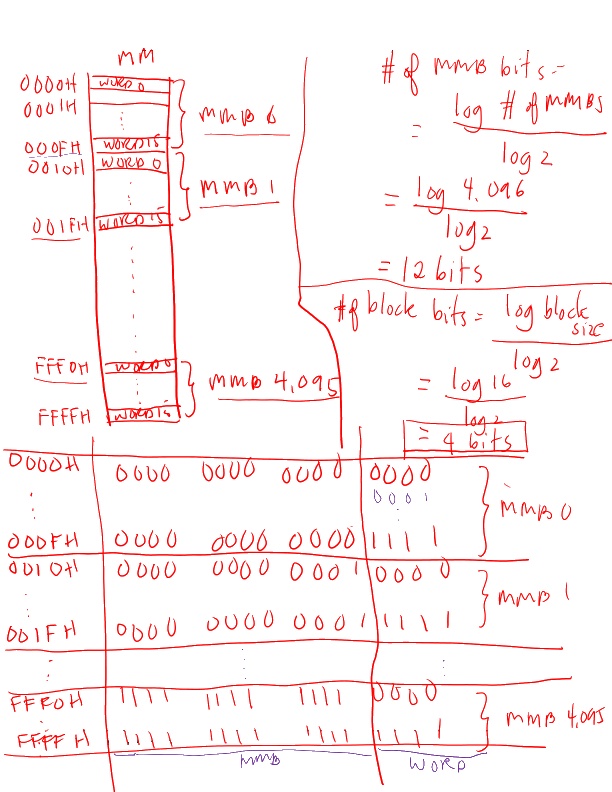 MM
0000H WORD 0
0001H
⋮
000FH WORD 15
MMB 0
0010H WORD 0
⋮
001FH WORD 15
MMB 1
⋮
FFF0H WORD 0
⋮
FFFFH WORD 15
MMB 4,095
# of MMB bits =
= log # of MMBs / log 2
= log 4,096 / log 2
= 12 bits
# of block bits = log block size / log 2
= log 16 / log 2
= 4 bits
0000H 0000 0000 0000 0000
0001
⋮ ⋮
000FH 0000 0000 0000 1111
MMB 0
0010H 0000 0000 0001 0000
⋮
001FH 0000 0000 0001 1111
MMB 1
⋮ ⋮ ⋮
FFF0H 1111 1111 1111 0000
⋮
FFFFH 1111 1111 1111 1111
MMB 4,095
MMB WORD